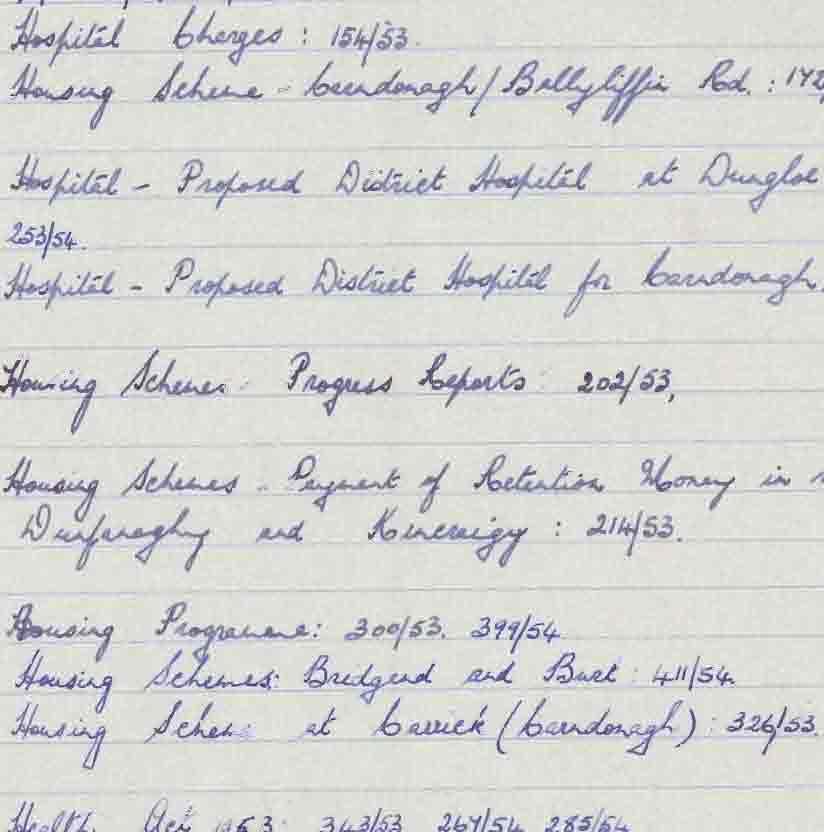 Hospital Charges : 154/53.
Housing Scheme - Carndonagh/Ballyliffin Rd. : 172/
Hospital - Proposed District Hospital at Dungloe
253/54.
Hospital - Proposed District Hospital for Carndonagh.
Housing Schemes : Progress Reports : 202/53,
Housing Schemes - Payment of Retention Money in
Dunfanaghy and Kincraigy : 214/53.
Housing Programme: 300/53. 399/54
Housing Schemes: Bridgend and Burt : 411/54.
Housing Scheme at Carrick (Carndonagh) : 326/53.
Health Act 1953: 343/53 267/54 285/54